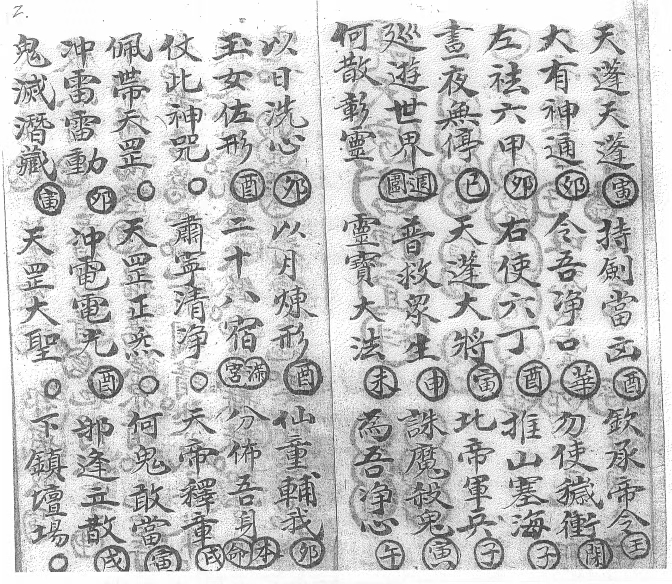 2.
天蓬天蓬㊞寅 持劍當凶 酉 欽承帝令 王
大有神通 卯 令吾淨口 華 勿使穢衝 閉
左祛六甲 卯 右使六丁 酉 推山塞海 子
晝夜無停 巳 天蓬大將 寅 北帝軍兵 子
廵遊世界 週圓 普救眾生 申 誅魔殺鬼 寅
何散彰靈 靈寳大法 未 為吾淨心 午
以日洗心 卯 以月煉形 酉 仙童輔我 卯
玉女佐形 酉 二十八宿 滿宮 分佈吾身 本命
仗此神咒〇 肅寧清淨〇 天帝釋章 戌
佩帶天罡〇 天罡正炁〇 何鬼敢當 寅
冲雷雷動 卯 冲電電光 酉 邪逢立散 戌
鬼滅潛藏 寅 天罡大聖〇 下鎮壇場〇